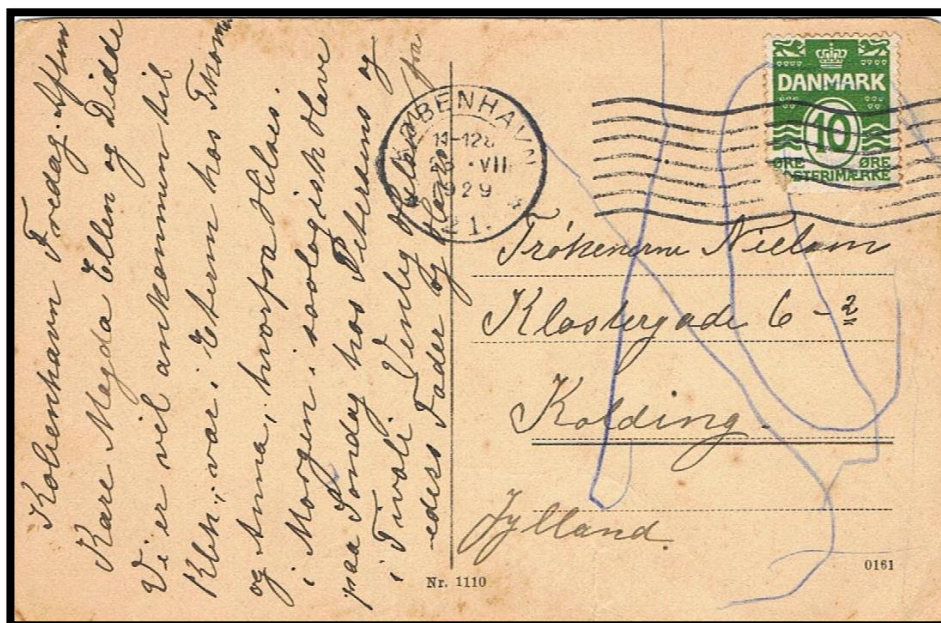 København Fredag. Aften
Kære Magda Ellen og Didde
Vi er vel ankommen til
Kbh., var i Eterm hos Thom
og Anna, hvorfra Hilsis.
i Morgen i soologisk Have
paa Søndag hos Petersens og
i Tivoli Venlig Hilsen fra
eders Fader og
KØBENHAVN
11-12
VII
1929
21.
DANMARK
10
ØRE ØRE
POSTERIMÆRKE
Frøkenerne Nielsen
Klostergade 6 - 2
Kolding.
Jylland.
Nr. 1110
0161